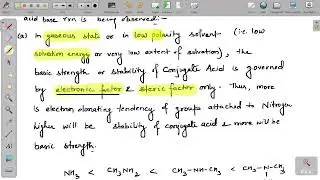 acid base rxn is being observed:-
(a) In gaseous state or in low polarity solvent (i.e. low
solvation energy or very low extent of solvation), the
basic strength or stability of Conjugate Acid is governed
by electronic factor & steric factor only. Thus, more
is electron donating tendency of groups attached to Nitrogen
higher will be stability of conjugate acid & more will be
basic strength.
NH3 < CH3NH2 < CH3-NH-CH3 < CH3-N-CH3